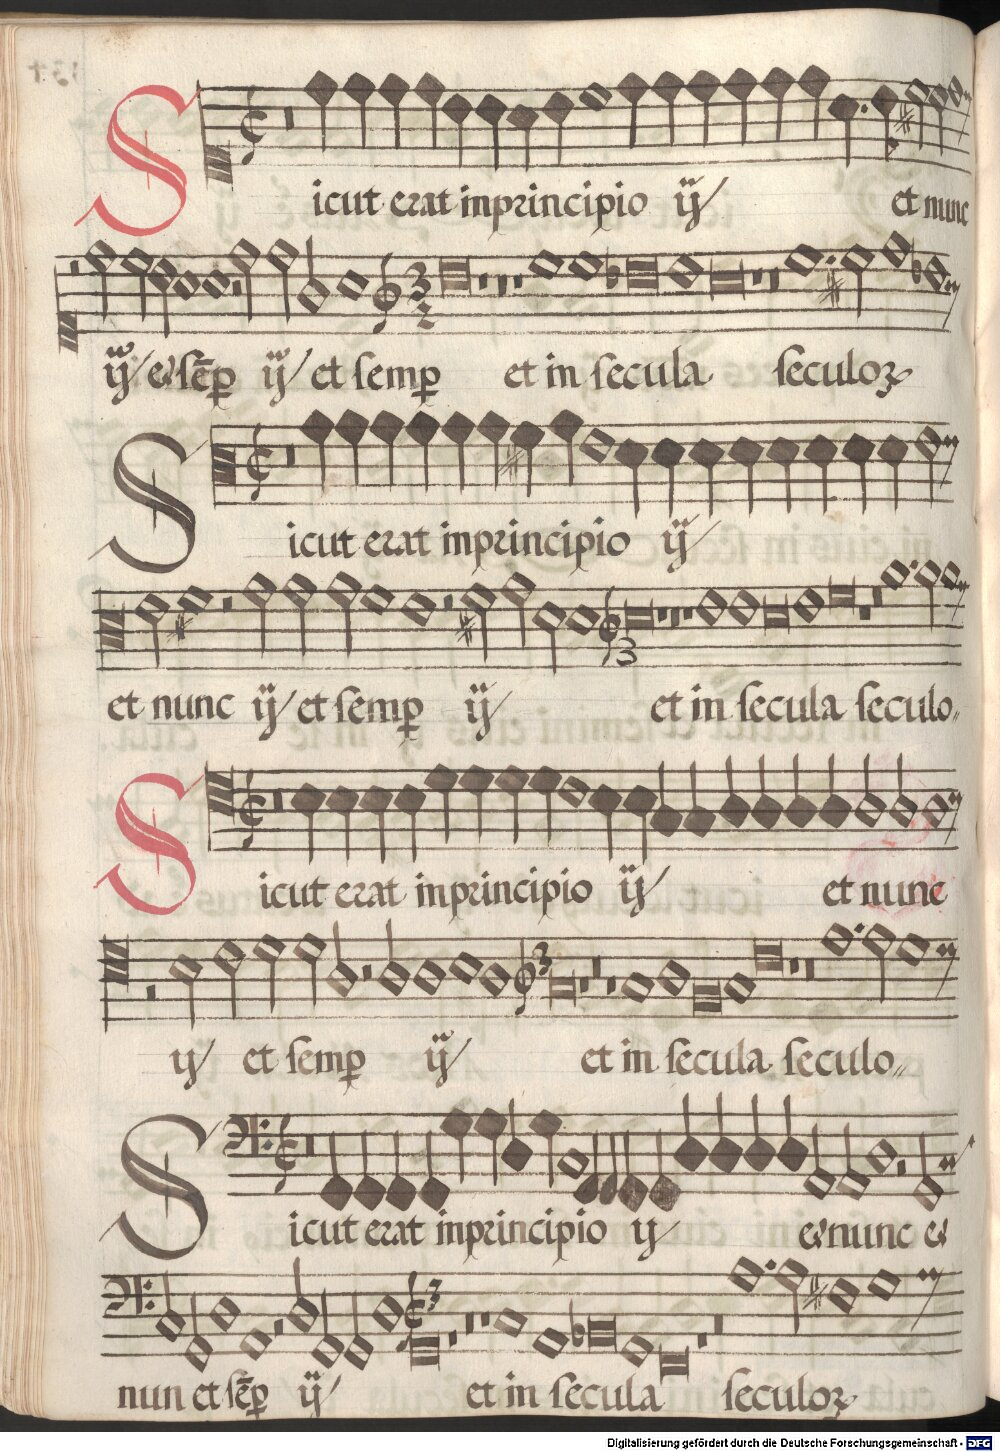 Sicut erat in principio ij et nunc
ij et sēp̱ ij et semp̱ et in secula seculoꝝ
Sicut erat in principio ij
et nunc ij et semp̱ ij et in secula seculo„
Sicut erat in principio ij et nunc
ij et semp̱ ij et in secula seculo„
Sicut erat in principio ij et nunc et
nun et sēp̱ ij et in secula seculoꝝ
Digitalisierung gefördert durch die Deutsche Forschungsgemeinschaft - DFG